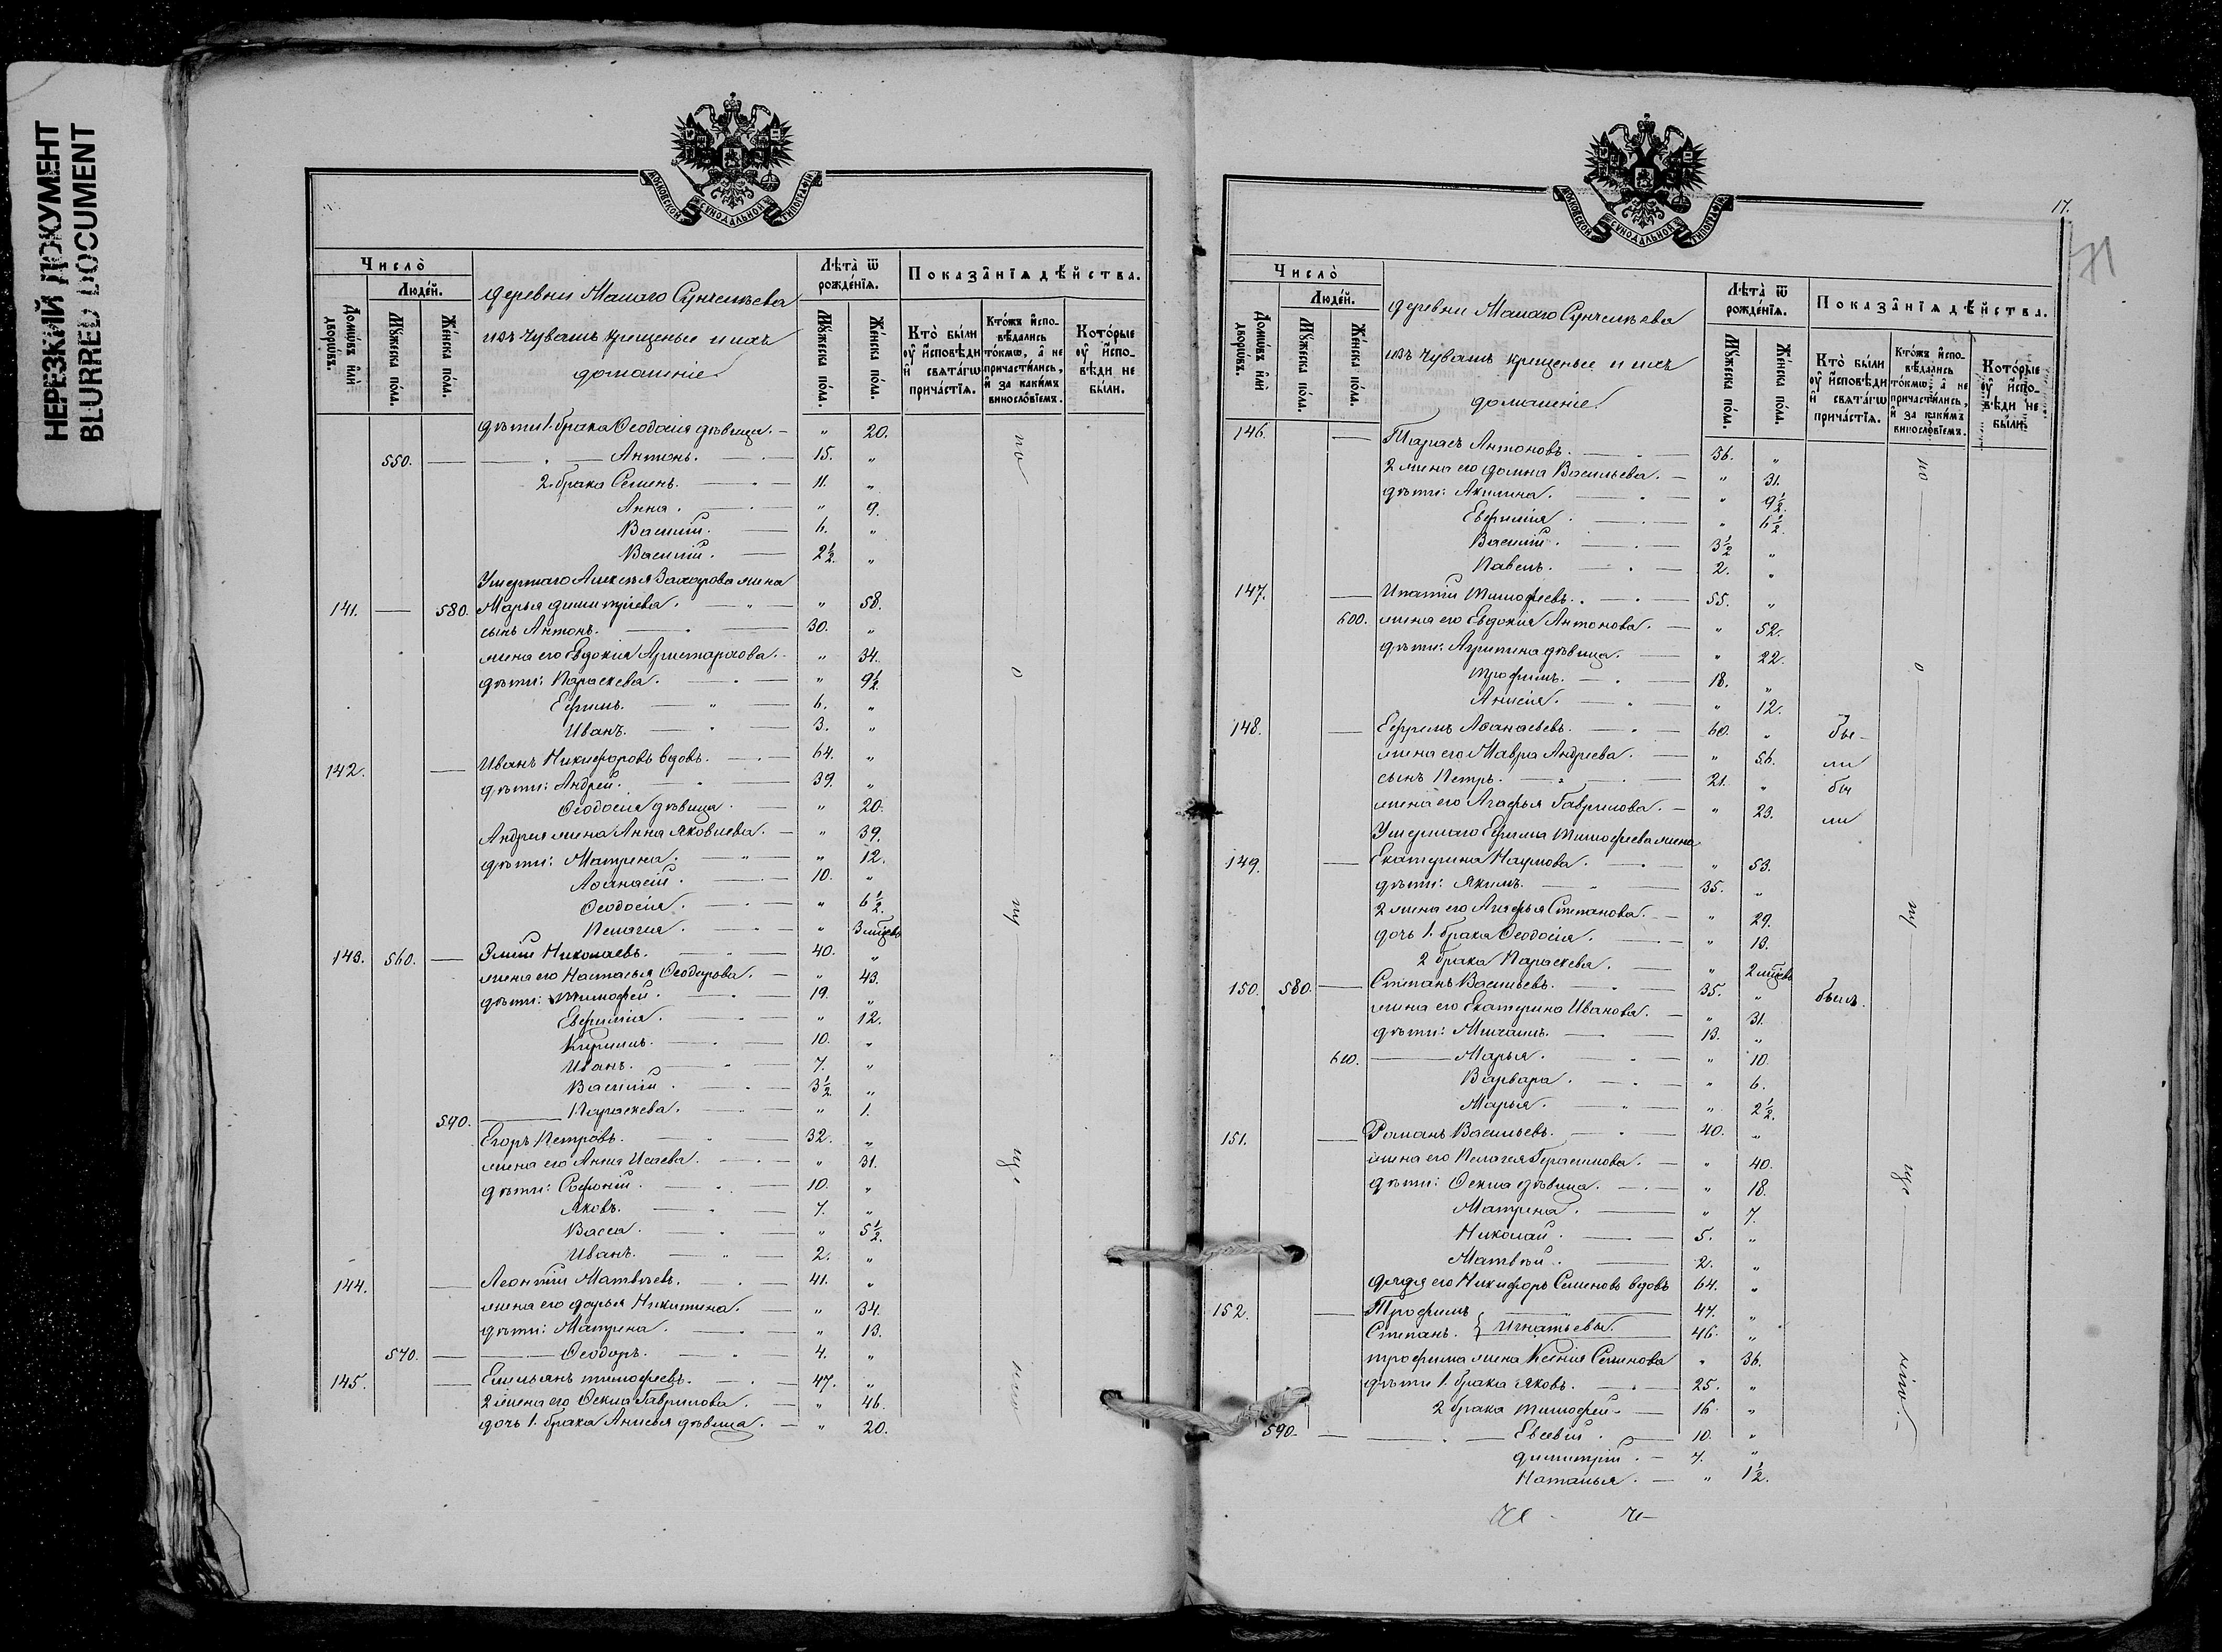 НЕРЕЗКИЙ ДОКУМЕНТ
BLURRED DOCUMENT
МОСКОВСКОЙ СѴНОДАЛЬНОЙ ТИПОГРАФІИ
Число̀
Людéй.
Домѡ́въ и҆лѝ дворѡ́въ.
Мꙋ́жеска по́ла.
Же́нска по́ла.
деревни Малаго Сунчелѣева
изъ чувашъ крещеные и ихъ
домашніе
Лѣ́та ѿ рожде́нїѧ.
Мꙋ́жеска по́ла.
Же́нска по́ла.
Показа̂нїѧ дѣ́йства.
Кто̀ бы́ли оу҆ и҆сповѣди и҆ свѧта́гѡ прича́стїѧ.
Кто́жъ и҆сповѣдались то́кмѡ, а҆ не причасти́лись, и҆ за каки́мъ винослóвїемъ.
Кото́рые оу҆ и҆сповѣди не бы́ли.
дѣти 1. брака Ѳеодосія дѣвица. — „ 20.
550. — Антонъ. — 15. „
2. брака Семенъ. — 11. „
Анна. — „ 9.
Василій. — 6. „
Василій. — 2½. „
Умершаго Алексѣя Захарова жена
141. — 580. Марья Димитріева. — „ 58.
сынъ Антонъ. — 30. „
жена его Евдокія Аристархова. — „ 34.
дѣти: Параскева. — „ 9½.
Ефимъ. — 6. „
Иванъ. — 3. „
142. — Иванъ Никифоровъ вдовъ. — 64. „
дѣти: Андрей. — 39. „
Ѳеодосія дѣвица. — „ 20.
Андрея жена Анна Яковлева. — „ 39.
дѣти: Матрена. — „ 12.
Аѳанасій. — 10. „
Ѳеодосія. — „ 6½.
Пелагея. — „ 3 мѣсѣцъ
143. 560. — Николаевъ. — 40. „
жена его Настасья Ѳеодорова. — „ 43.
дѣти: Тимофей. — 19. „
Евфимія. — „ 12.
Кириллъ. — 10. „
Иванъ. — 7. „
Василій. — 3½. „
590. — Параскева. — „ 1.
Егоръ Петровъ. — 32. „
жена его Анна Исаева. — „ 31.
дѣти: Софоній. — 10. „
Яковъ. — 7. „
Васса. — „ 5½.
Иванъ. — 2. „
144. — Леонтій Матвѣевъ. — 41. „
жена его Дарья Никитина. — „ 34.
дѣти: Матрена. — „ 13.
570. — Ѳеодоръ. — 4. „
145. — Емельянъ Тимофеевъ. — 47. „
2 жена его Ѳекла Гаврилова. — „ 46.
дочь 1. брака Анисья дѣвица. — „ 20.
17.
71
МОСКОВСКОЙ СѴНОДАЛЬНОЙ ТИПОГРАФІИ
Число̀
Людéй.
Домѡ́въ и҆лѝ дворѡ́въ.
Мꙋ́жеска по́ла.
Же́нска по́ла.
деревни Малаго Сунчелѣева
изъ чувашъ крещеные и ихъ
домашніе
Лѣ́та ѿ рожде́нїѧ.
Мꙋ́жеска по́ла.
Же́нска по́ла.
Показа̂нїѧ дѣ́йства.
Кто̀ бы́ли оу҆ и҆сповѣди и҆ свѧта́гѡ прича́стїѧ.
Кто́жъ и҆сповѣдались то́кмѡ, а҆ не причасти́лись, и҆ за каки́мъ винослóвїемъ.
Кото́рые оу҆ и҆сповѣди не бы́ли.
146. — Тарасъ Антоновъ. — 36. „
2 жена его Домна Васильева. — „ 31.
дѣти: Акилина. — „ 9½.
Евфимія. — „ 6½.
Василій. — 3½ „
Павелъ. — 2. „
147. — Ипатій Тимофеевъ. — 55. „
600. жена его Евдокія Антонова. — „ 52.
дѣти: Агрипина дѣвица. — „ 22.
Трофимъ. — 18. „
Анисія. — „ 12.
148. — Ефремъ Аѳанасьевъ. — 60. „ бы-
жена его Мавра Андреева. — „ 56. ли
сынъ Петръ. — 21. „ бы
жена его Агафья Гаврилова. — „ 23. ли
Умершаго Ефима Тимофеева жена
149. — Екатерина Наумова. — „ 53.
дѣти: Якимъ. — 35. „
2 жена его Агафья Степанова. — „ 29.
дочь 1. брака Ѳеодосія. — „ 13.
2 брака Параскева. — „ 2 мѣсѣцъ
150. 580. — Степанъ Васильевъ. — 35. „ былъ.
жена его Екатерина Иванова. — „ 31.
дѣти: Михаилъ. — 13. „
610. — Марья. — „ 10.
Варвара. — „ 6.
Марья. — „ 2½.
151. — Романъ Васильевъ. — 40. „
жена его Пелагея Герасимова. — „ 40.
дѣти: Ѳекла дѣвица. — „ 18.
Матрена. — „ 7.
Николай. — 5. „
Матвѣй. — 2. „
дядя его Никифоръ Семеновъ вдовъ 64. „
152. — Трофимъ — 47. „
Степанъ. } Игнатьевы. 46. „
Трофима жена Ксенія Семенова „ 36.
дѣти 1. брака Яковъ. — 25. „
2 брака Тимофей. — 16. „
590. — Евсевій. — 10. „
Димитрій. — 7. „
Наталья. — „ 1½.